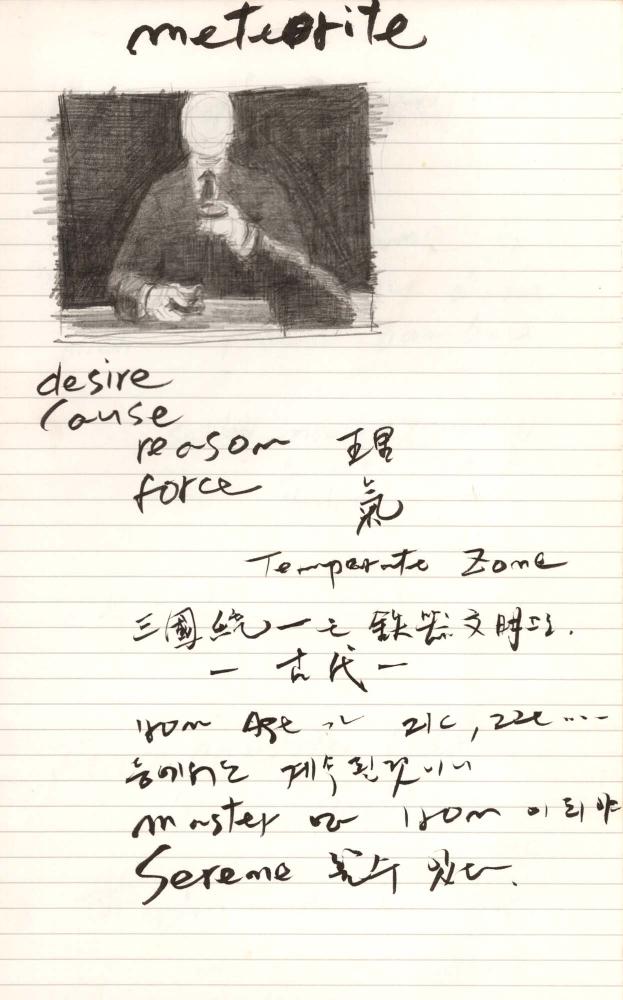 meteorite
desire
cause
reason 理
force 氣
Temperate Zone
三國統一도 鉄器文明으로.
- 古代 -
Iron Age 가 21c, 22c ....
등에서는 계속될것이니
master 만 Iron 이 되야
Serene 할수 있다.